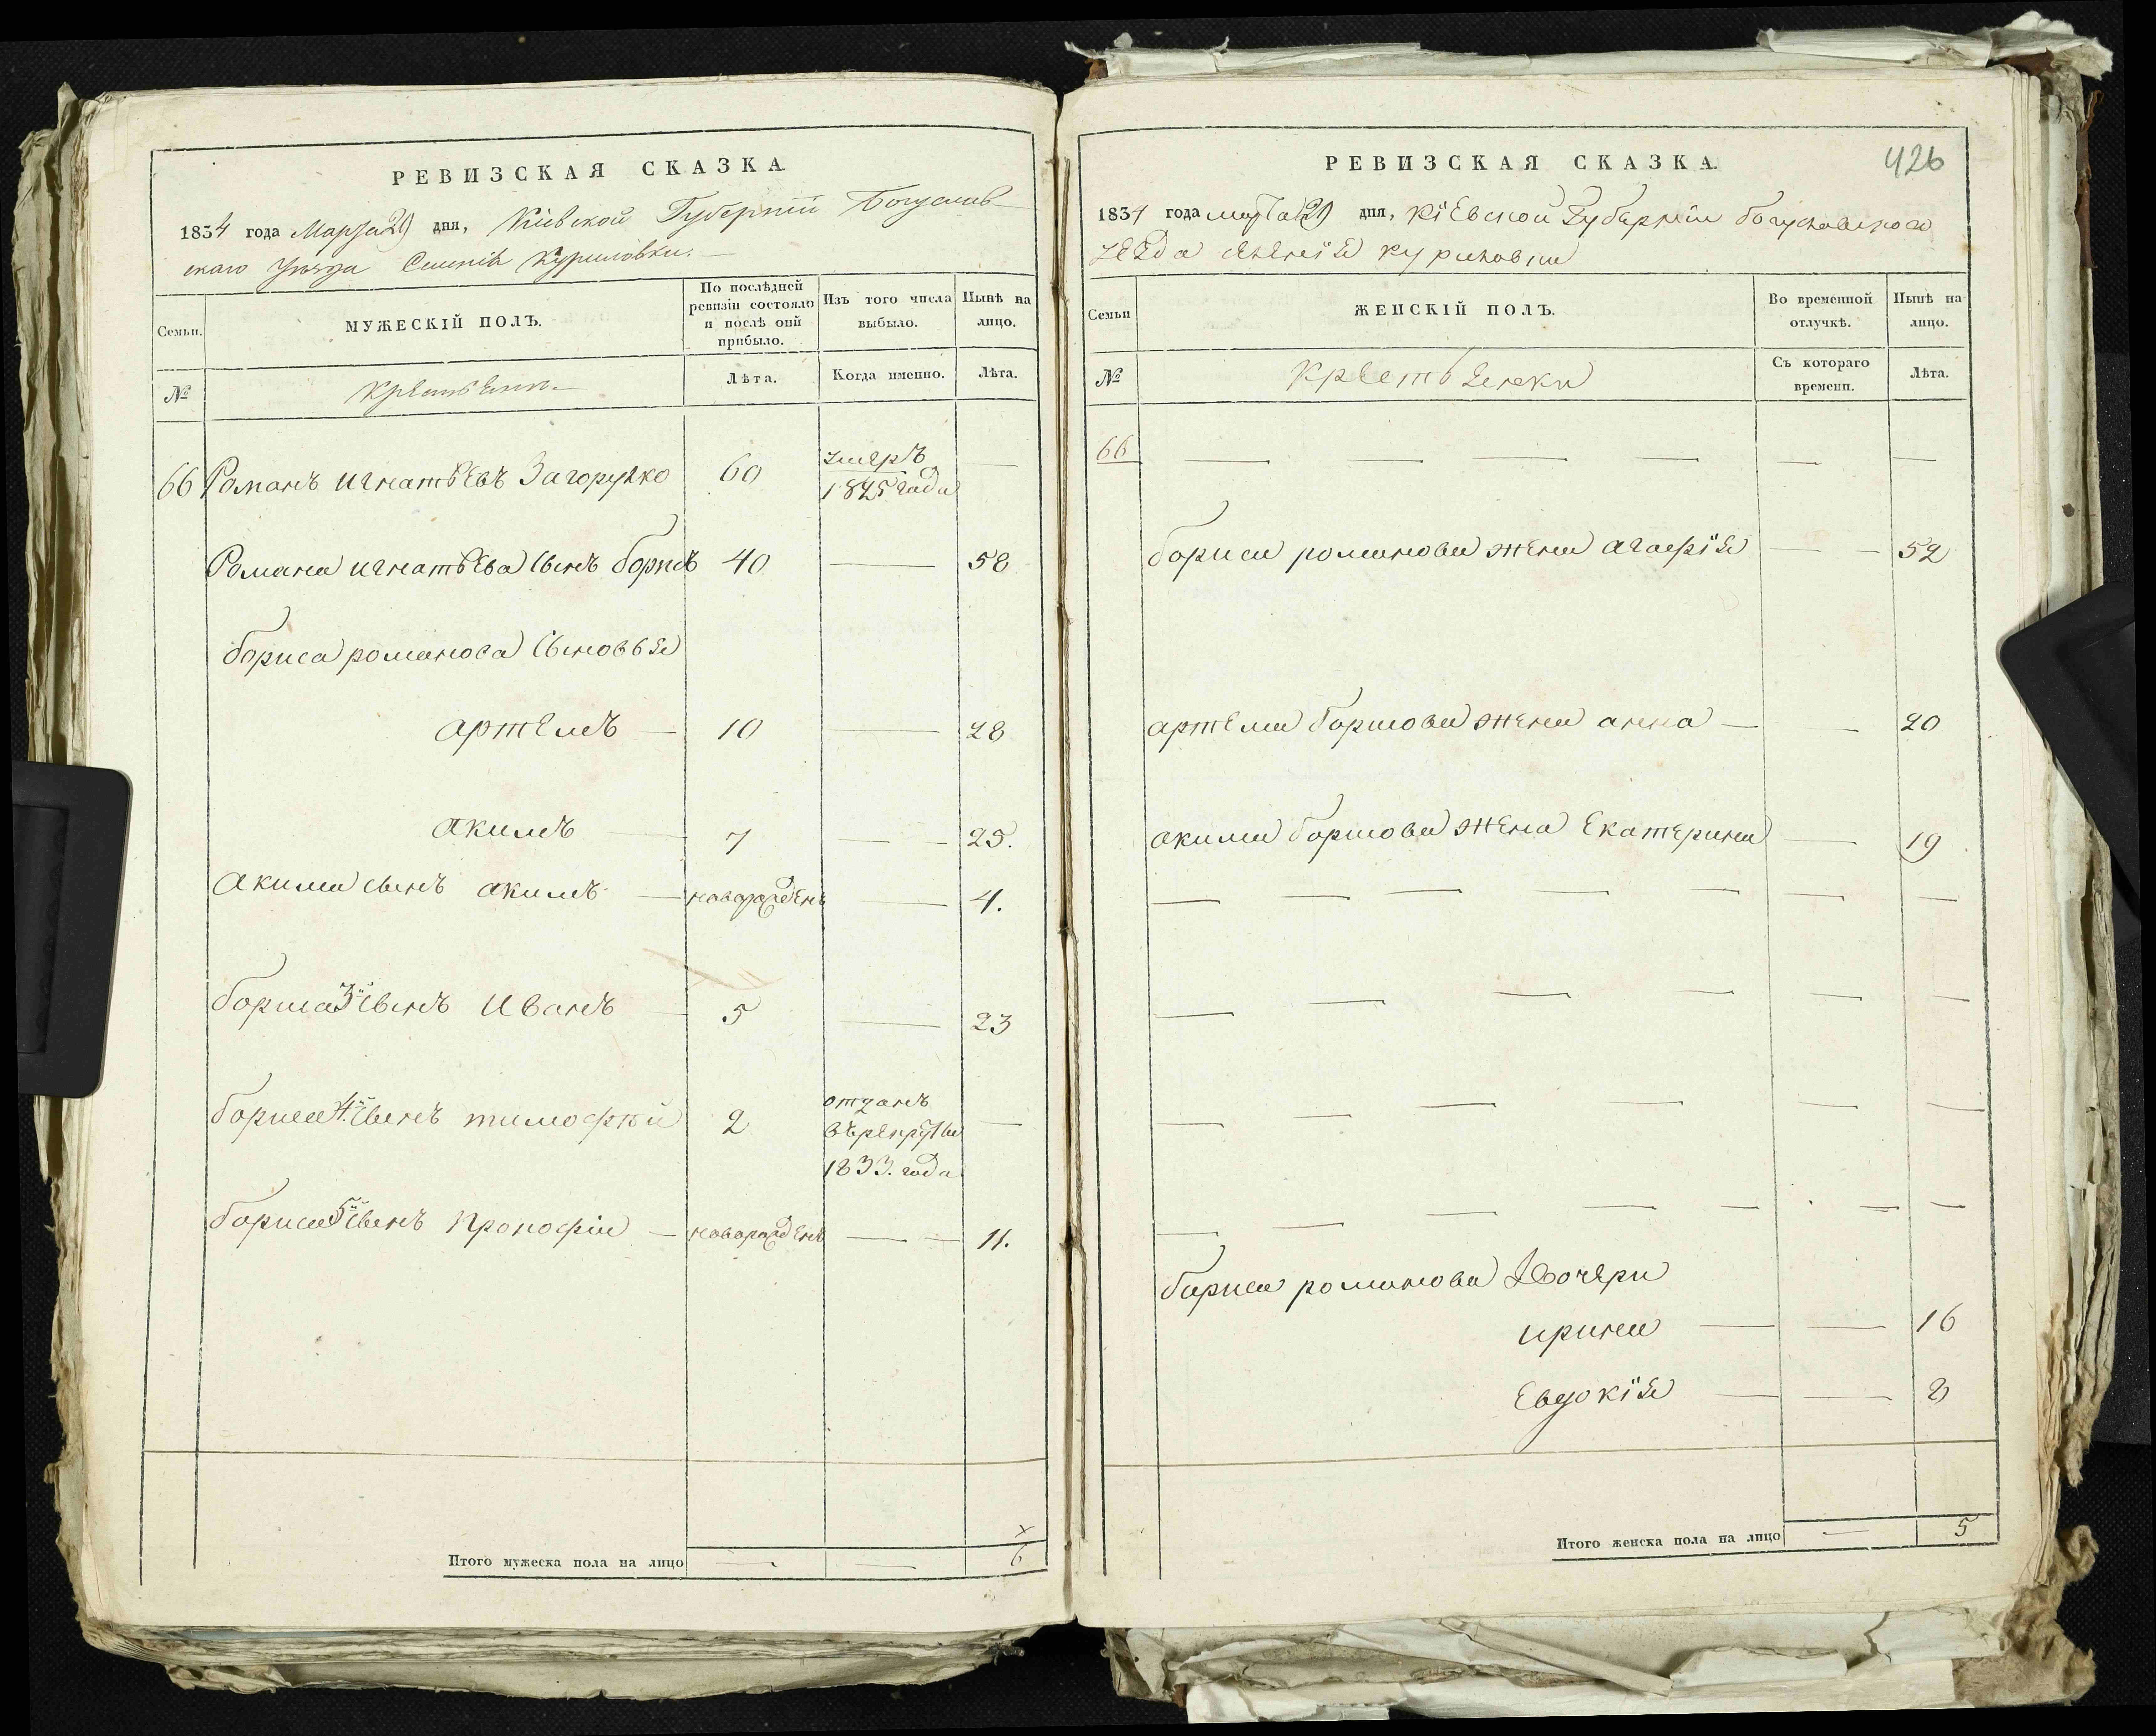 РЕВИЗСКАЯ СКАЗКА
1834 года Марта 29 дня, Кіевской Губерніи Богуслав
скаго Уѣзда Селенія Куриловки.
Семьи.
МУЖЕСКІЙ ПОЛЪ.
По послѣдней ревизіи состояло и послѣ оній прибыло.
Изъ того числа выбыло.
Нынѣ на лицо.
№
Крестьяне.
Лѣта.
Когда именно.
Лѣта.
66 Романъ игнатьевъ Загорулко 60 умеръ 1825 года —
Романа игнатьева сынъ борисъ 40 — 58
бориса романова сыновья
артемъ — 10 — 28
акимъ — 7 — — 25.
акима сынъ акимъ — новорожденъ — 4.
бориса 3й сынъ иванъ — 5 — 23
бориса 4й сынъ тимофѣй 2 отданъ въ рекруты 1833. года —
бориса 5й сынъ прокофіи — новорожденъ — — 11.
Итого мужеска пола на лицо — — 6
426
РЕВИЗСКАЯ СКАЗКА
1834 года марта 29 дня, кіевской Губерніи богуславского
уезда селенія куриловки
Семьи
ЖЕНСКІЙ ПОЛЪ.
Во временной отлучкѣ.
Нынѣ на лицо.
№
Крестьянки
Съ котораго времени.
Лѣта.
66 — — — — — —
бориса романова жена агафія — — 52
артема борисова жена анна — — 20
акима борисова жена екатерина — 19
бориса романова дочери
ирина — — 16
евдокія — — 8
Итого женска пола на лицо — 5